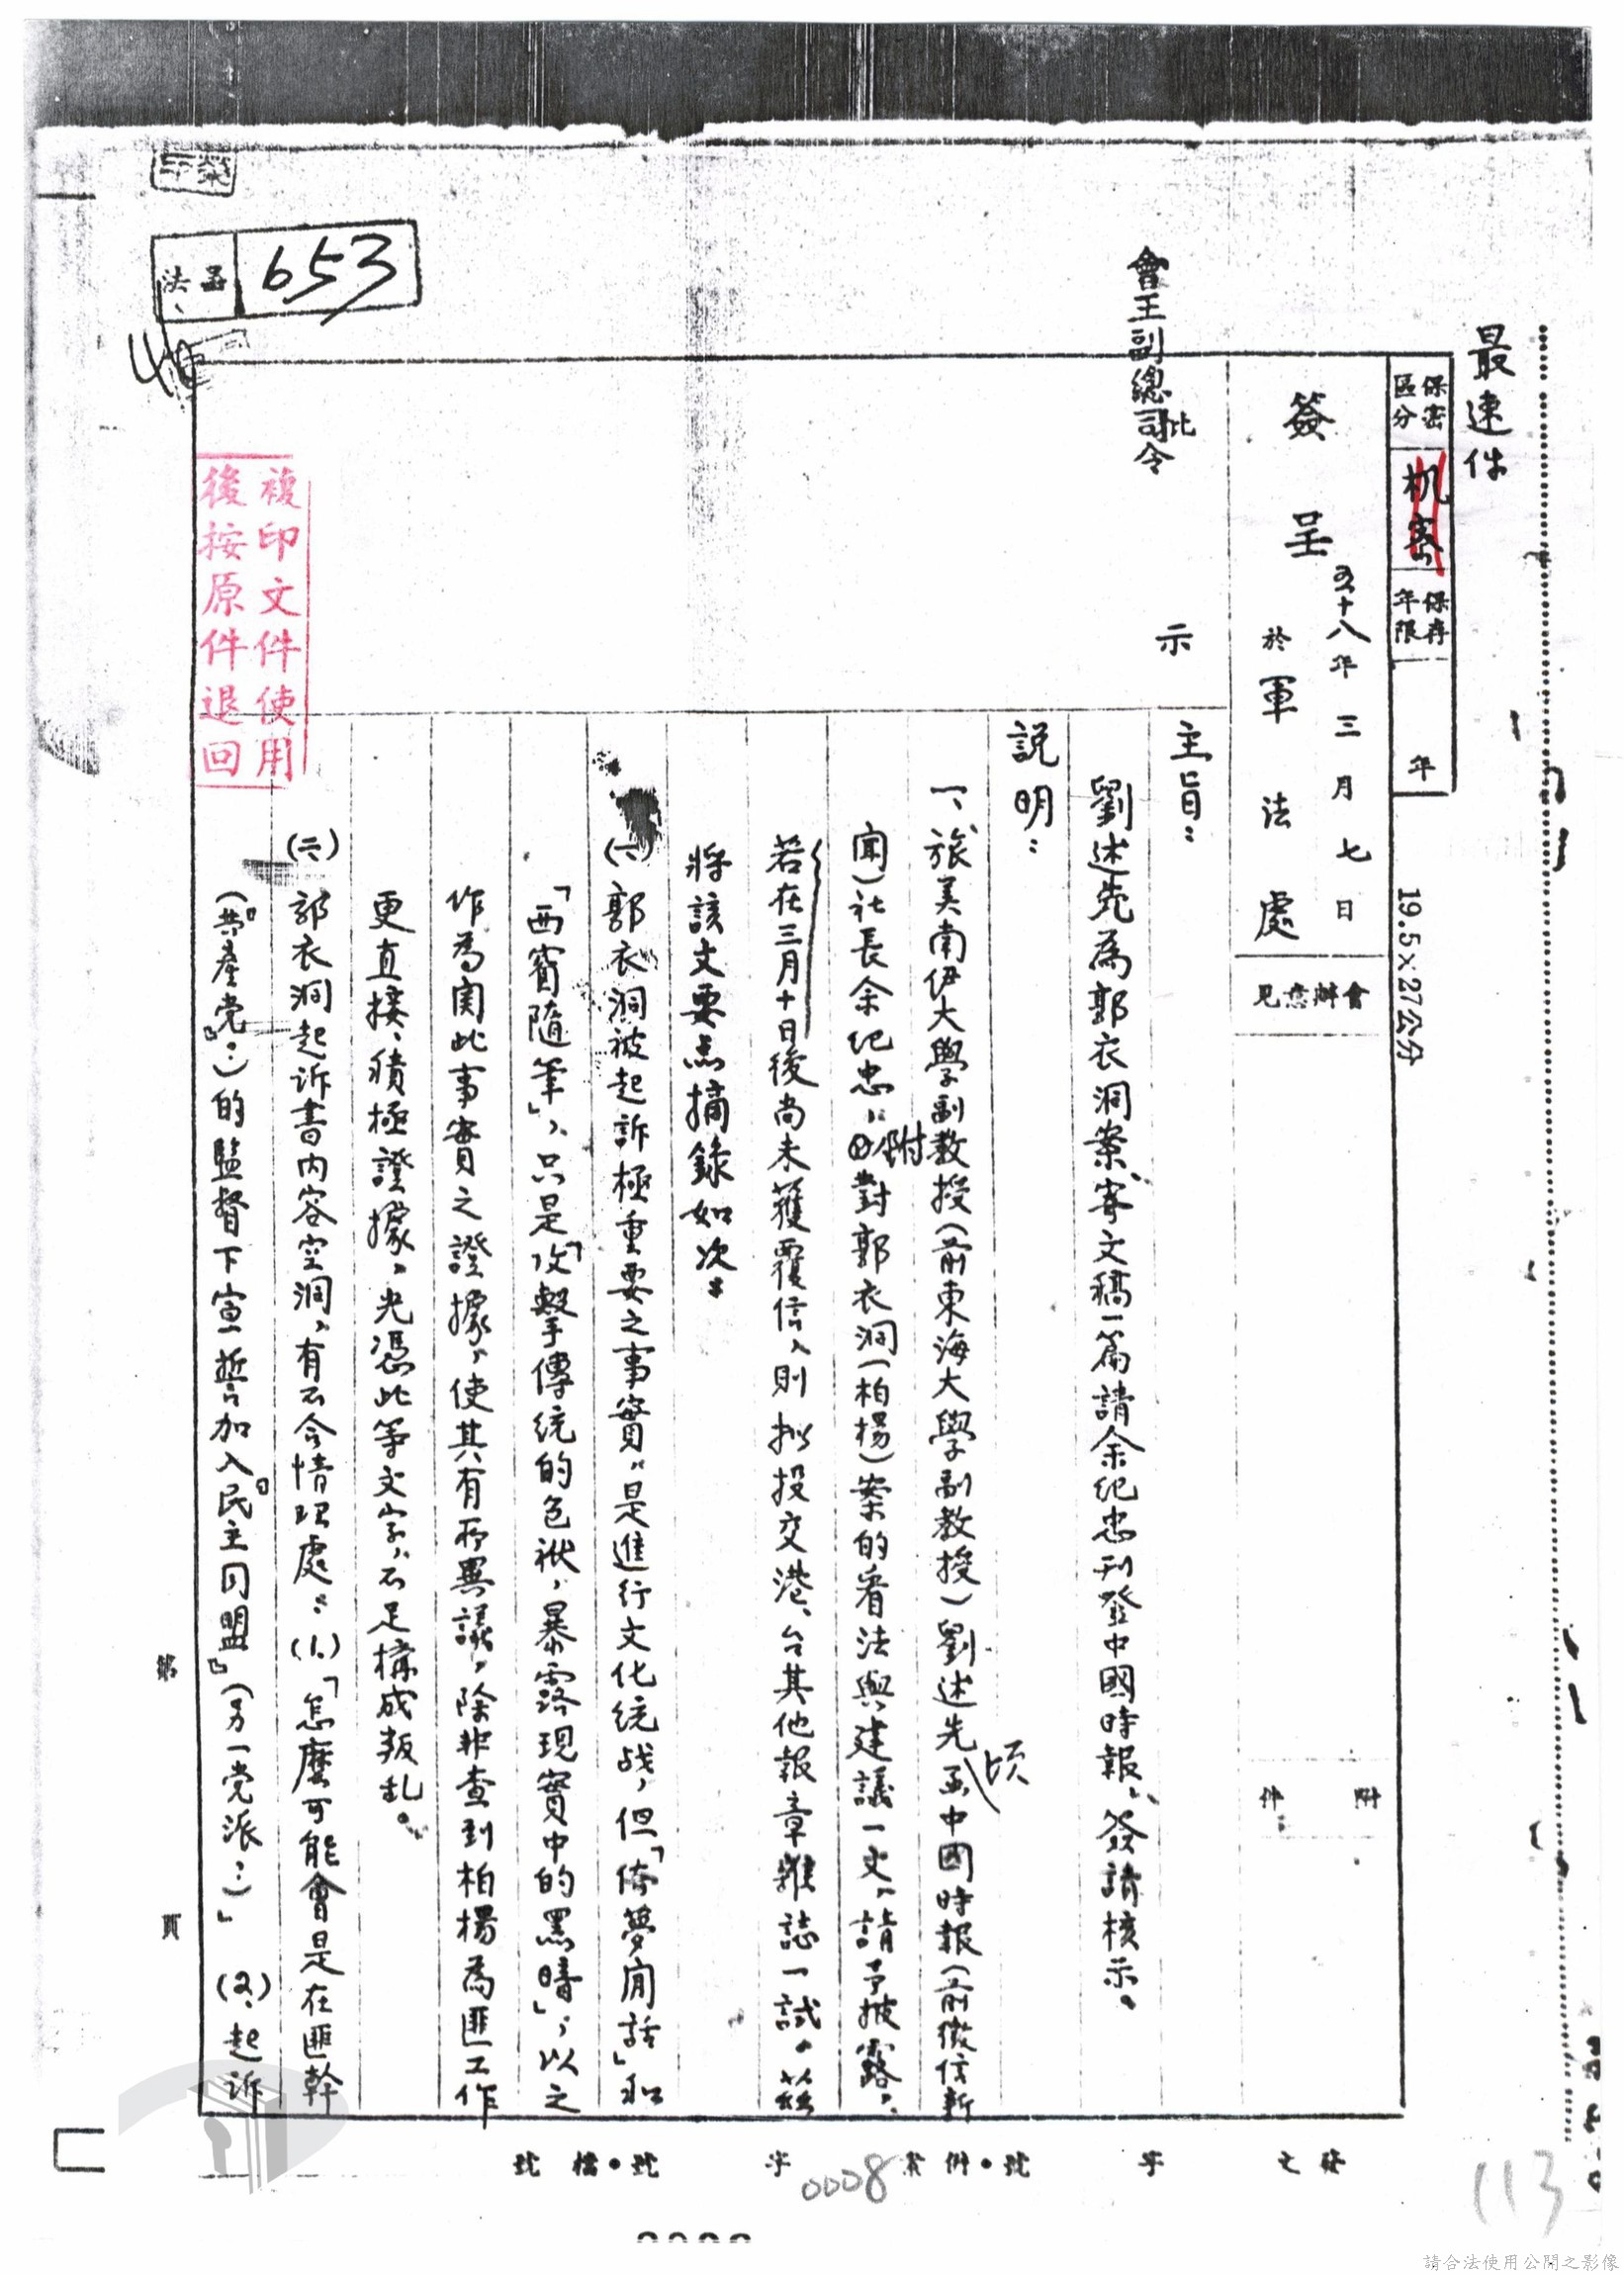 最速件
保密區分
机密
保存年限
年
19.5×27公分
簽呈
五十八年三月七日
於軍法處
會辦意見
附件:
會王副總司令
批
示
主旨:
劉述先為郭衣洞案、寄文稿一篇請余紀忠刊登中國時報,簽請核示。
說明:
一、旅美南伊大學副教授(前東海大學副教授)劉述先頃函中國時報(前徵信新
聞)社長余紀忠,附對郭衣洞(柏楊)案的看法與建議一文,請予披露,
若在三月十日後尚未獲覆信,則擬投交港、台其他報章雜誌一試。茲
將該文要点摘錄如次:
(一)郭衣洞被起訴極重要之事實,是進行文化統战,但「倚夢閒話」和
「西窗隨筆」,只是「攻擊傳統的包袱,暴露現實中的黑暗」,以之
作為实此事實之證據,使其有所異議,除非查到柏楊為匪工作
更直接、積極證據,光憑此等文字,不足構成叛乱。
(二)郭衣洞起诉書內容空洞,有不合情理處:(1.)「怎麼可能會是在匪幹
(『共產党』:)的監督下宣誓加入『民主同盟』(另一党派:)」(2.)起訴
第 頁
法函
653
複印文件使用
後按原件退回
發文 字 號・件案 字 號・檔號
0008
113
請合法使用公開之影像